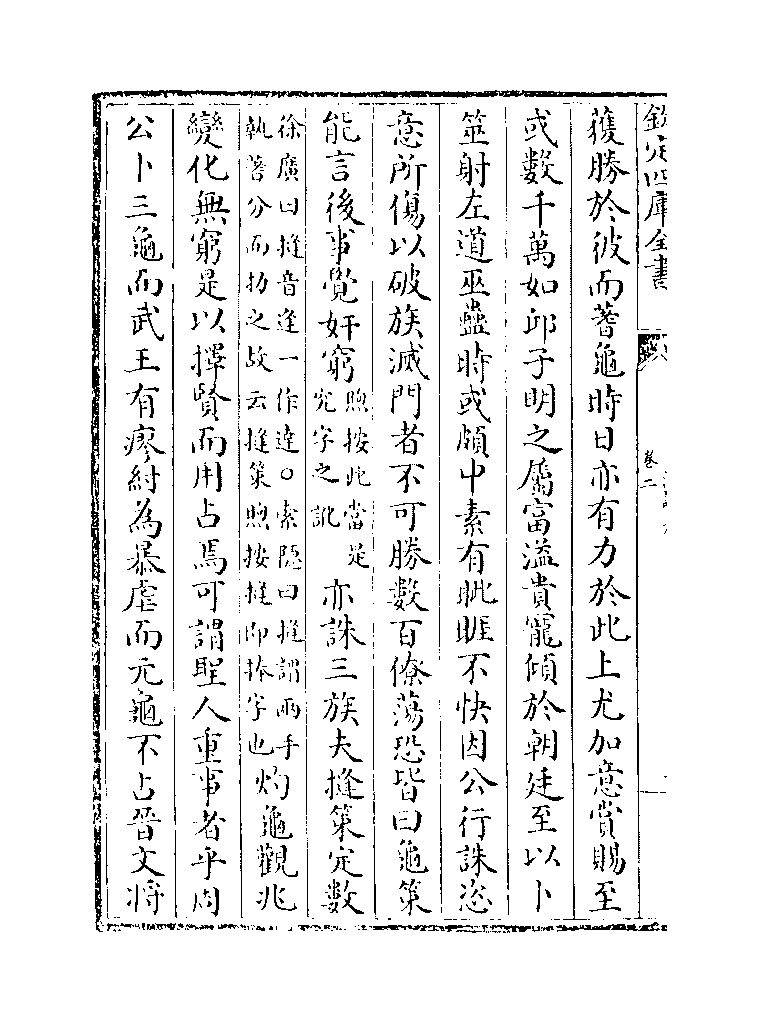 欽定四庫全書
卷二
獲勝於彼而蓍龜時日亦有力於此上尤加意賞賜至
或數千萬如邱子明之屬富溢貴寵傾於朝廷至以卜
筮射左道巫蠱時或頗中素有眦睚不快因公行誅恣
意所傷以破族滅門者不可勝數百僚蕩恐皆曰龜策
能言後事覺奸窮煦按此當是究字之訛亦誅三族夫摓策定數
徐廣曰摓音逢一作達○索隠曰摓謂兩手執蓍分而扐之故云摓策煦按摓卽捧字也灼龜觀兆
變化無窮是以擇賢而用占焉可謂聖人重事者乎周
公卜三龜而武王有瘳紂為暴虐而元龜不占晉文將